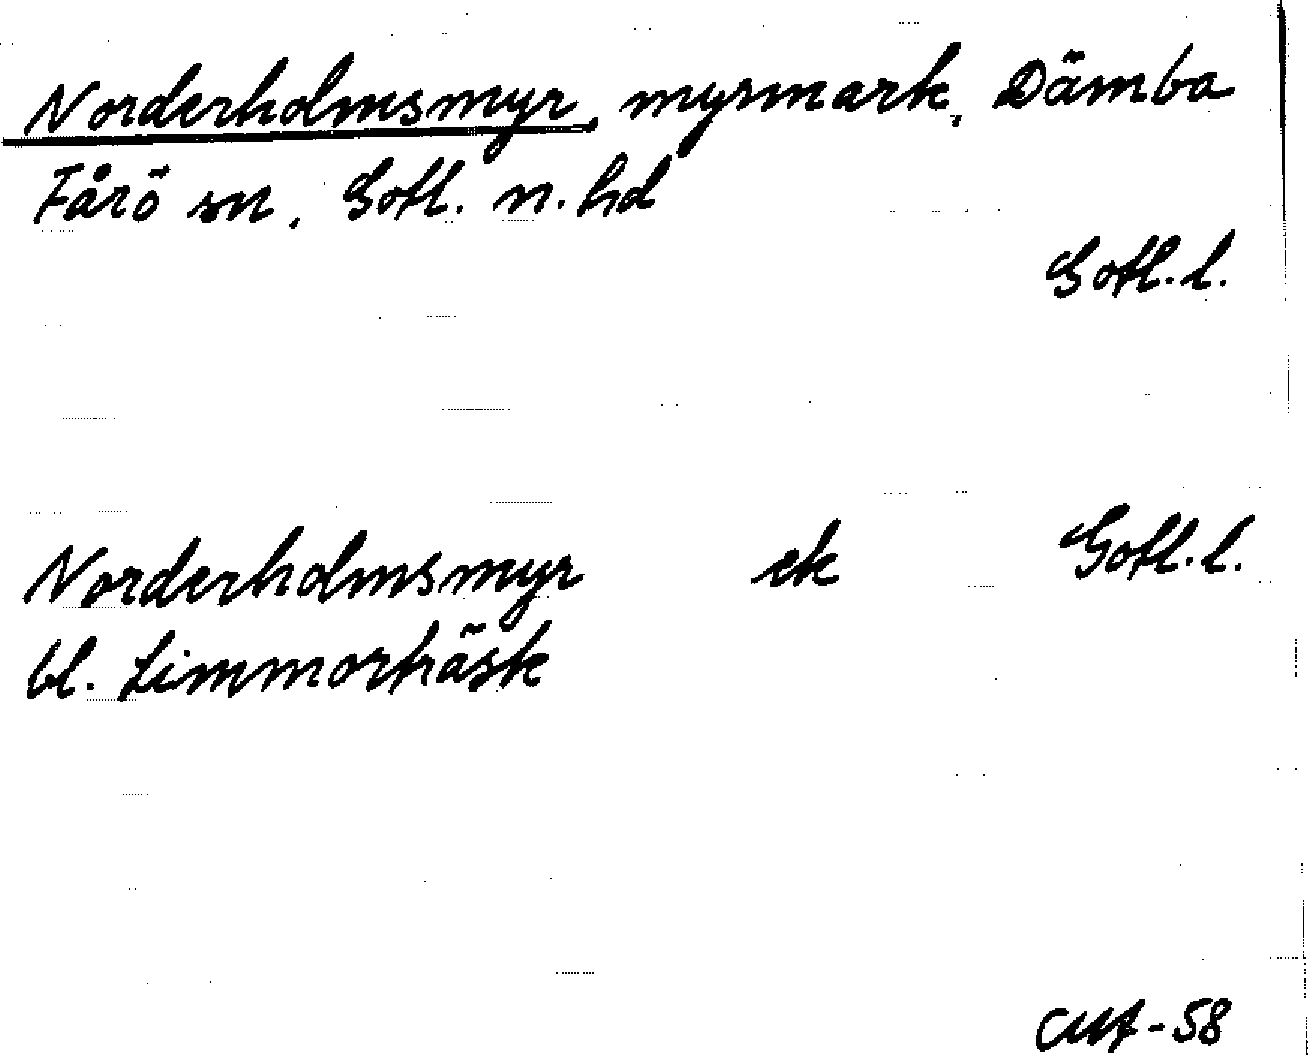 Norderholmsmyr, myrmark, Dämba
Fårö sn, Gotl. n. hd
Gotl. l.
Norderholmsmyr ek Gotl. l.
bl. Limmorträsk
CMA-58